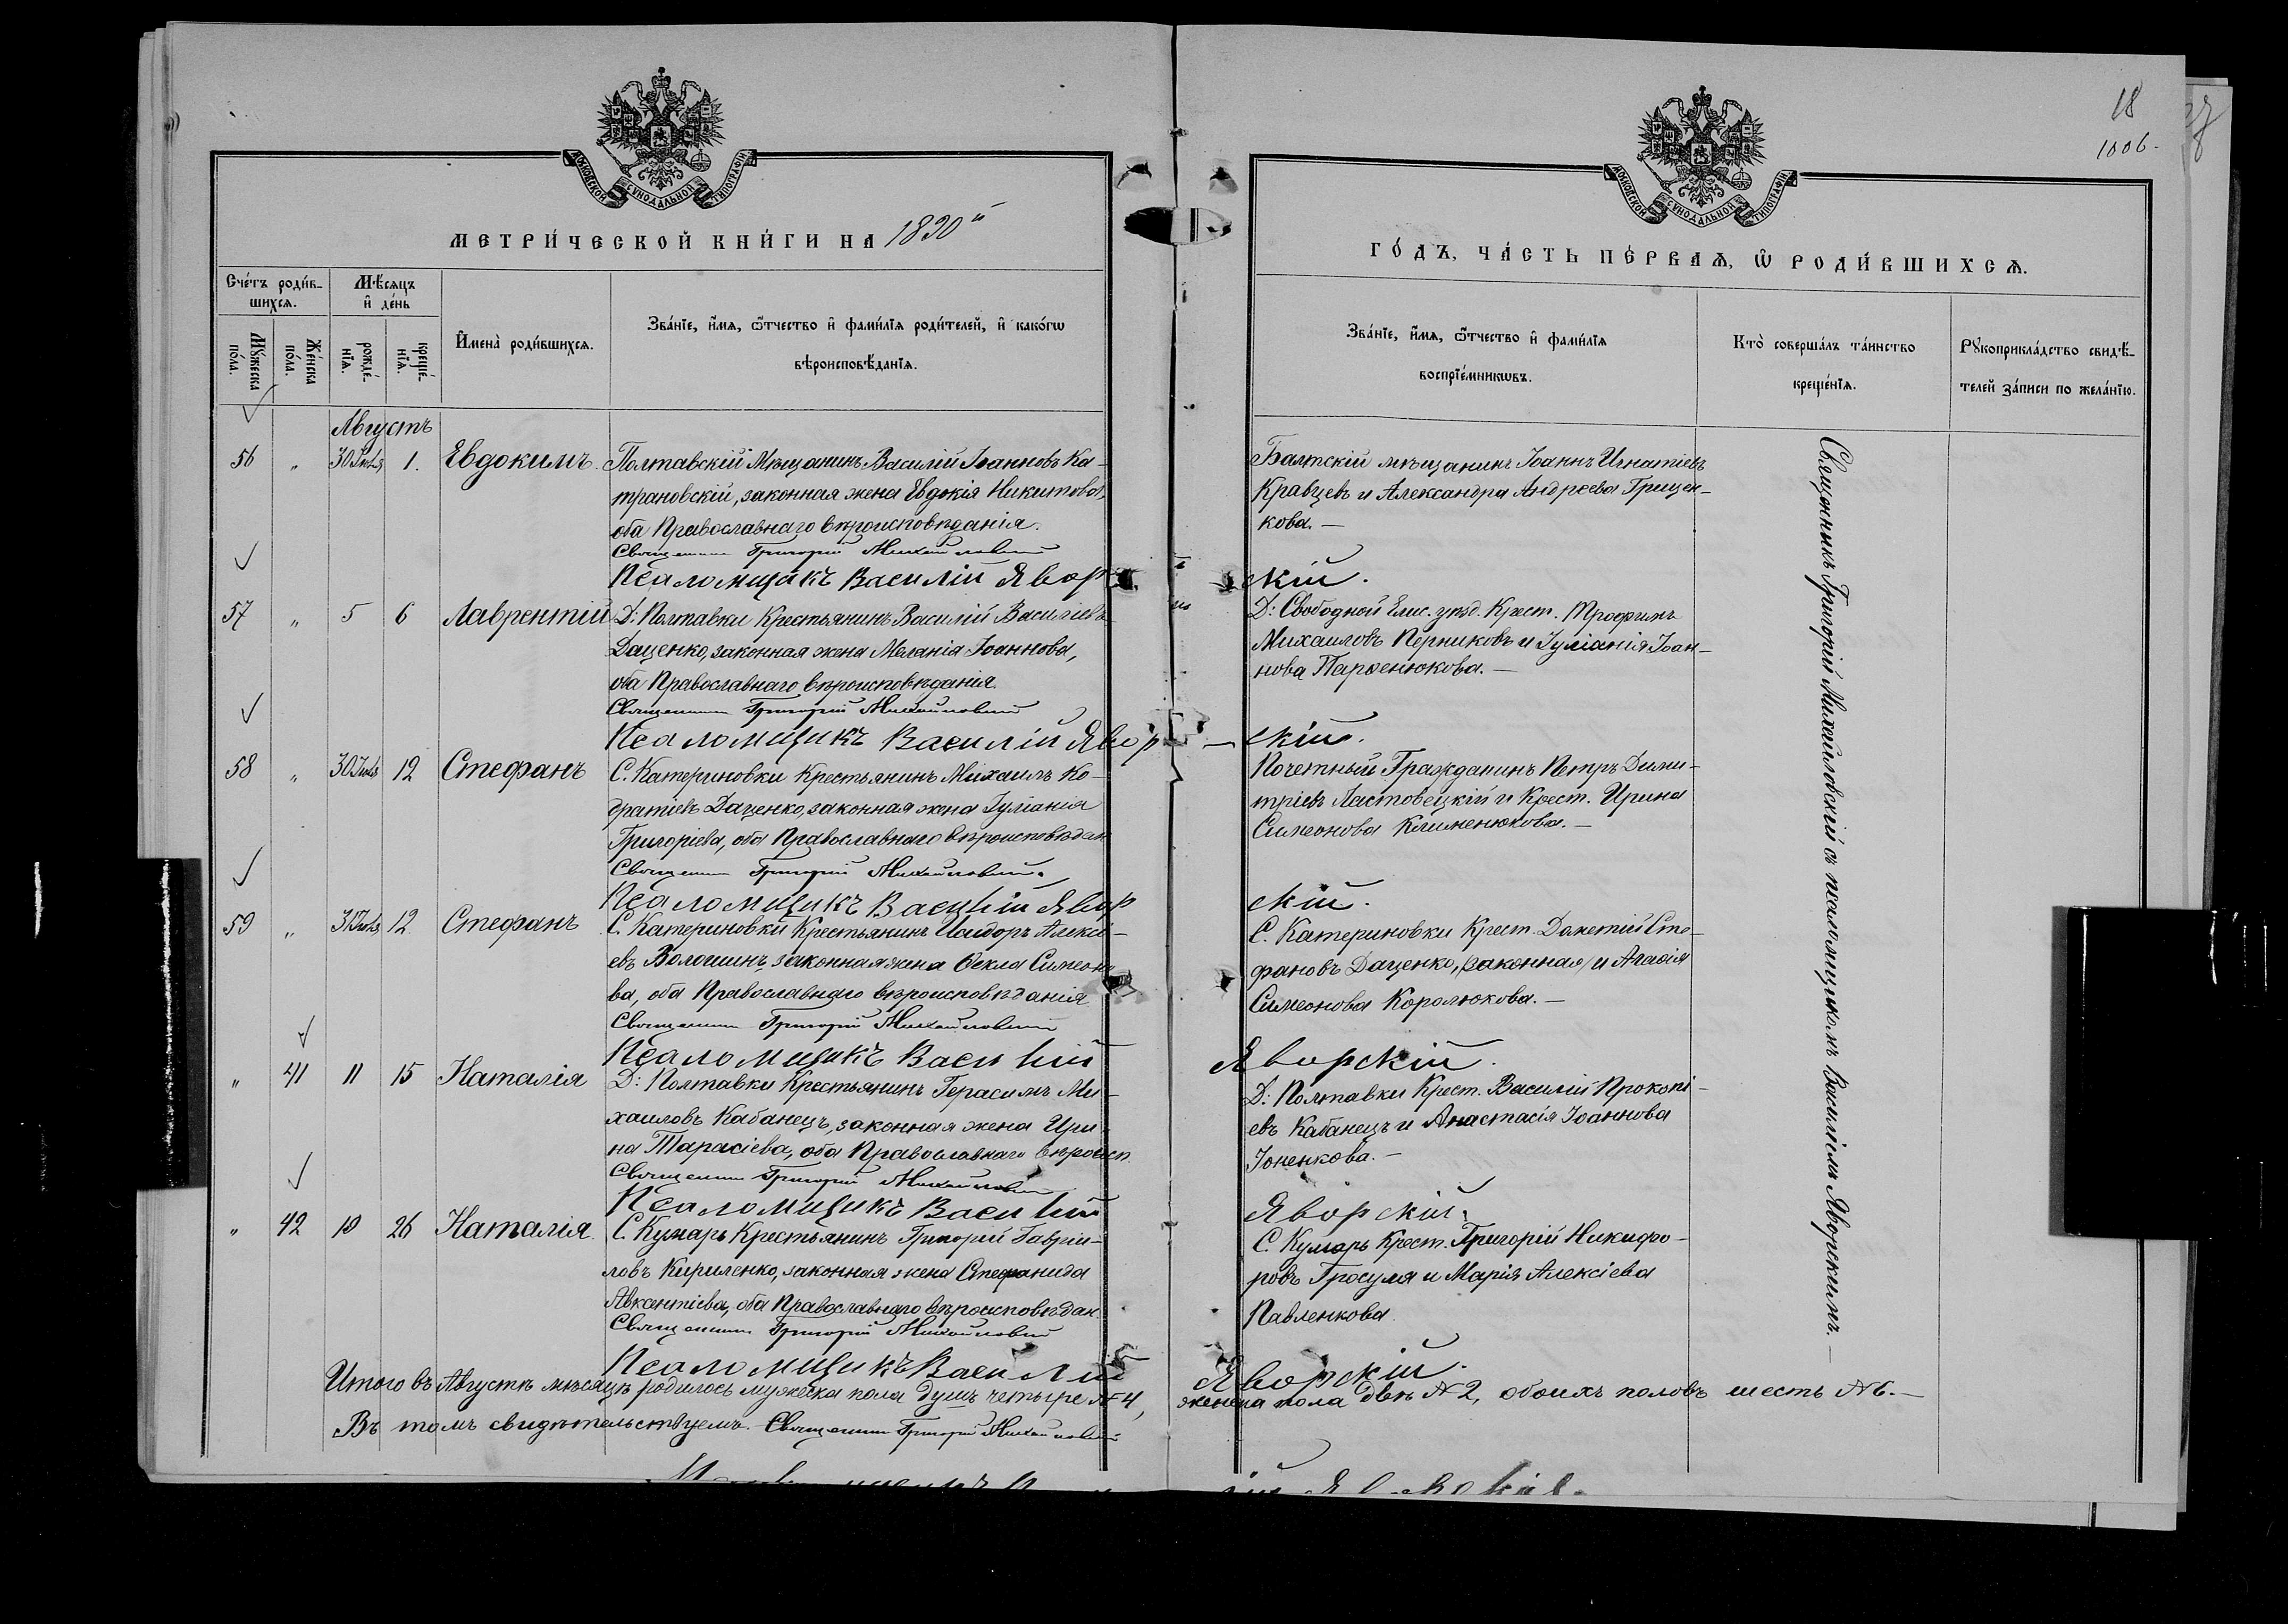 18
1006.
МОСКОВСКОЙ СУНОДАЛЬНОЙ ТИПОГРАФІИ.
МОСКОВСКОЙ СУНОДАЛЬНОЙ ТИПОГРАФІИ.
МЕТРИ́ЧЕСКОЙ КНИ́ГИ НА 1890й
ГО́ДЪ, ЧА́СТЬ ПЕ́РВАѦ, Ѿ РОДИ́ВШИХСѦ.
Сче́тъ роди́в-
шихсѧ.
Мѣ́сяцъ
и҆ де́нь
Мꙋ́жеска
по́ла.
Же́нска
по́ла.
рожде́-
нїѧ.
креще́-
нїѧ.
И҆мена̀ роди́вшихсѧ.
Зва́нїе, и҆́мѧ, ѻ҆́тчество и҆ фами́лїѧ роди́телей, и҆ како́гѡ
вѣроисповѣ́данїѧ.
Зва́нїе, и҆́мѧ, ѻ҆́тчество и҆ фами́лїѧ
воспрїе́мникѡвъ.
Кто̀ соверша́лъ та́инство
креще́нїѧ.
Рꙋкоприкла́дство свидѣ́-
телей за́писи по жела́нїю.
Августъ
56 " 30 Іюля 1. Евдокимъ. Полтавскій Мѣщанинъ Василій Іоанновъ Ка-
трановскій, законная жена Евдокія Никитова,
оба Православнаго вѣроисповѣданія.
Священникъ Григорій Михайловскій
Псаломщикъ Василій Явор
скій.
Балтскій мѣщанинъ Іоаннъ Игнатіевъ
Кравцевъ и Александра Андреева Грищен-
кова.—
57 " 5 6 Лаврентій Д: Полтавки Крестьянинъ Василій Василіевъ
Даценко, законная жена Меланія Іоаннова,
оба Православнаго вѣроисповѣданія.
Священникъ Григорій Михайловскій
Псаломщикъ Василій Явор-
скій.
Д: Свободной Елис. уѣзд. Крест. Трофимъ
Михаиловъ Перниковъ и Іуліанія Іоан-
нова Парѳенюкова.—
58 " 30 Іюля 12 Стефанъ С. Катериновки Крестьянинъ Михаилъ Ко-
дратіевъ Даценко, законная жена Іуліанія
Григоріева, оба Православнаго вѣроисповѣдан.
Священникъ Григорій Михайловскій.
Псаломщикъ Василій Явор
скій.
Почетный Гражданинъ Петръ Дими-
тріевъ Ластовецкій и Крест. Ирина
Симеонова Клименюкова.—
59 " 31 Іюля 12 Стефанъ С. Катериновки Крестьянинъ Исидоръ Алексі-
евъ Волошинъ, законная жена Ѳекла Симеоно
ва, оба Православнаго вѣроисповѣданія
Священникъ Григорій Михайловскій
Псаломщикъ Василій
Яворскій.
С. Катериновки Крест. Дометій Сте-
фановъ Даценко, (законная) и Агафія
Симеонова Королюкова.—
" 41 11 15 Наталія Д: Полтавки Крестьянинъ Герасимъ Ми-
хаиловъ Кабанецъ, законная жена Ири-
на Тарасіева, оба Православнаго вѣроисп.
Священникъ Григорій Михайловскій
Псаломщикъ Василій
Яворскій.
Д: Полтавки Крест. Василій Прокопі-
евъ Кабанецъ и Анастасія Іоаннова
Іоненкова.—
" 42 10 26 Наталія. С. Кумарь Крестьянинъ Григорій Гаврии-
ловъ Кириленко, законная жена Стефанида
Авксентіева, оба Православнаго вѣроисповѣдан.
Священникъ Григорій Михайловскій
Псаломщикъ Василій
Яворскій.
С. Кумарь Крест. Григорій Никифо-
ровъ Гросуля и Марія Алексіева
Павленкова
Священникъ Григорій Михайловскій съ псаломщикомъ Василіемъ Яворскимъ.—
Итого въ Августѣ мѣсяцѣ родилось мужеска пола душъ четыре № 4, женска пола двѣ № 2, обоихъ половъ шесть № 6.—
Въ томъ свидѣтельствуемъ. Священникъ Григорій Михайловскій